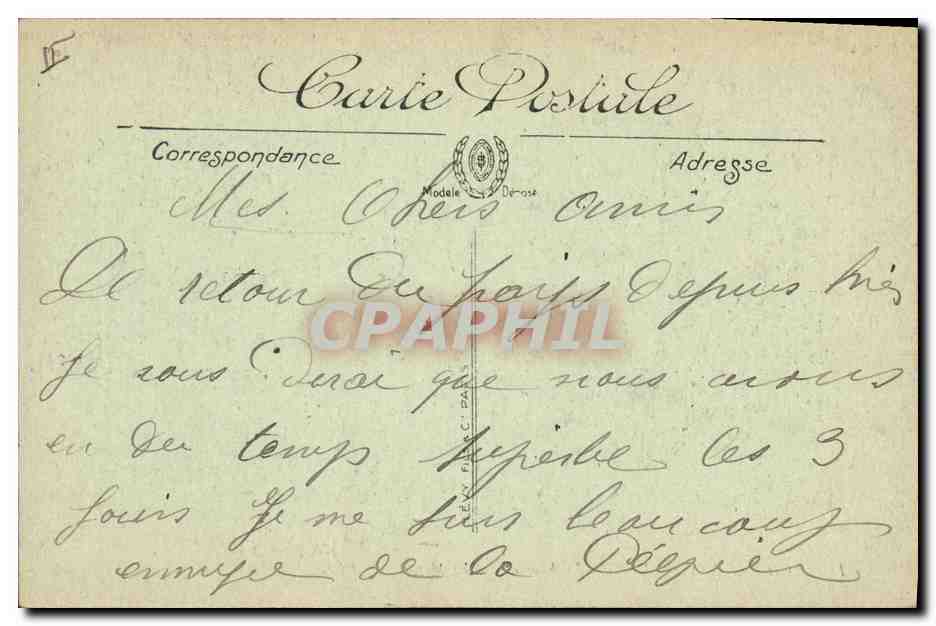 II
Carte Postale
Correspondance
Adresse
Modèle Déposé
Mes Chers amis
De retour du pays depuis hier
CPAPHIL
Je vous dirai que nous avons
1
LÉVY FILS & Cie PARIS
eu du temps superbe les 3
jours Je me suis beaucoup
ennuyé de la